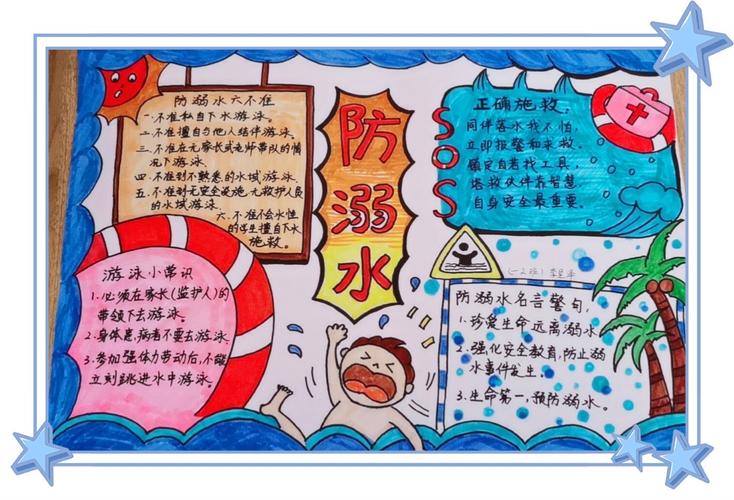 防溺水六不准
一.不准私自下水游泳。
二.不准擅自与他人结伴游泳。
三.不准在无家长或老师带队的情
况下游泳。
四.不准到不熟悉的水域游泳。
五.不准到无安全设施,无救护人员
的水域游泳。
六.不准不会水性
的学生擅自下水
施救。
防溺水
SOS
正确施救。
同伴落水我不怕,
立即报警和求救。
镇定自若找工具,
搭救伙伴靠智慧,
自身安全最重要。
游泳小常识
1.必须在家长(监护人)的
带领下去游泳。
2.身体患病者不要去游泳。
3.参加强体力劳动后,不能
立刻跳进水中游泳。
防溺水名言警句,
1.珍爱生命远离溺水。
2.强化安全教育,防止溺
水事件发生。
3.生命第一,预防溺水。